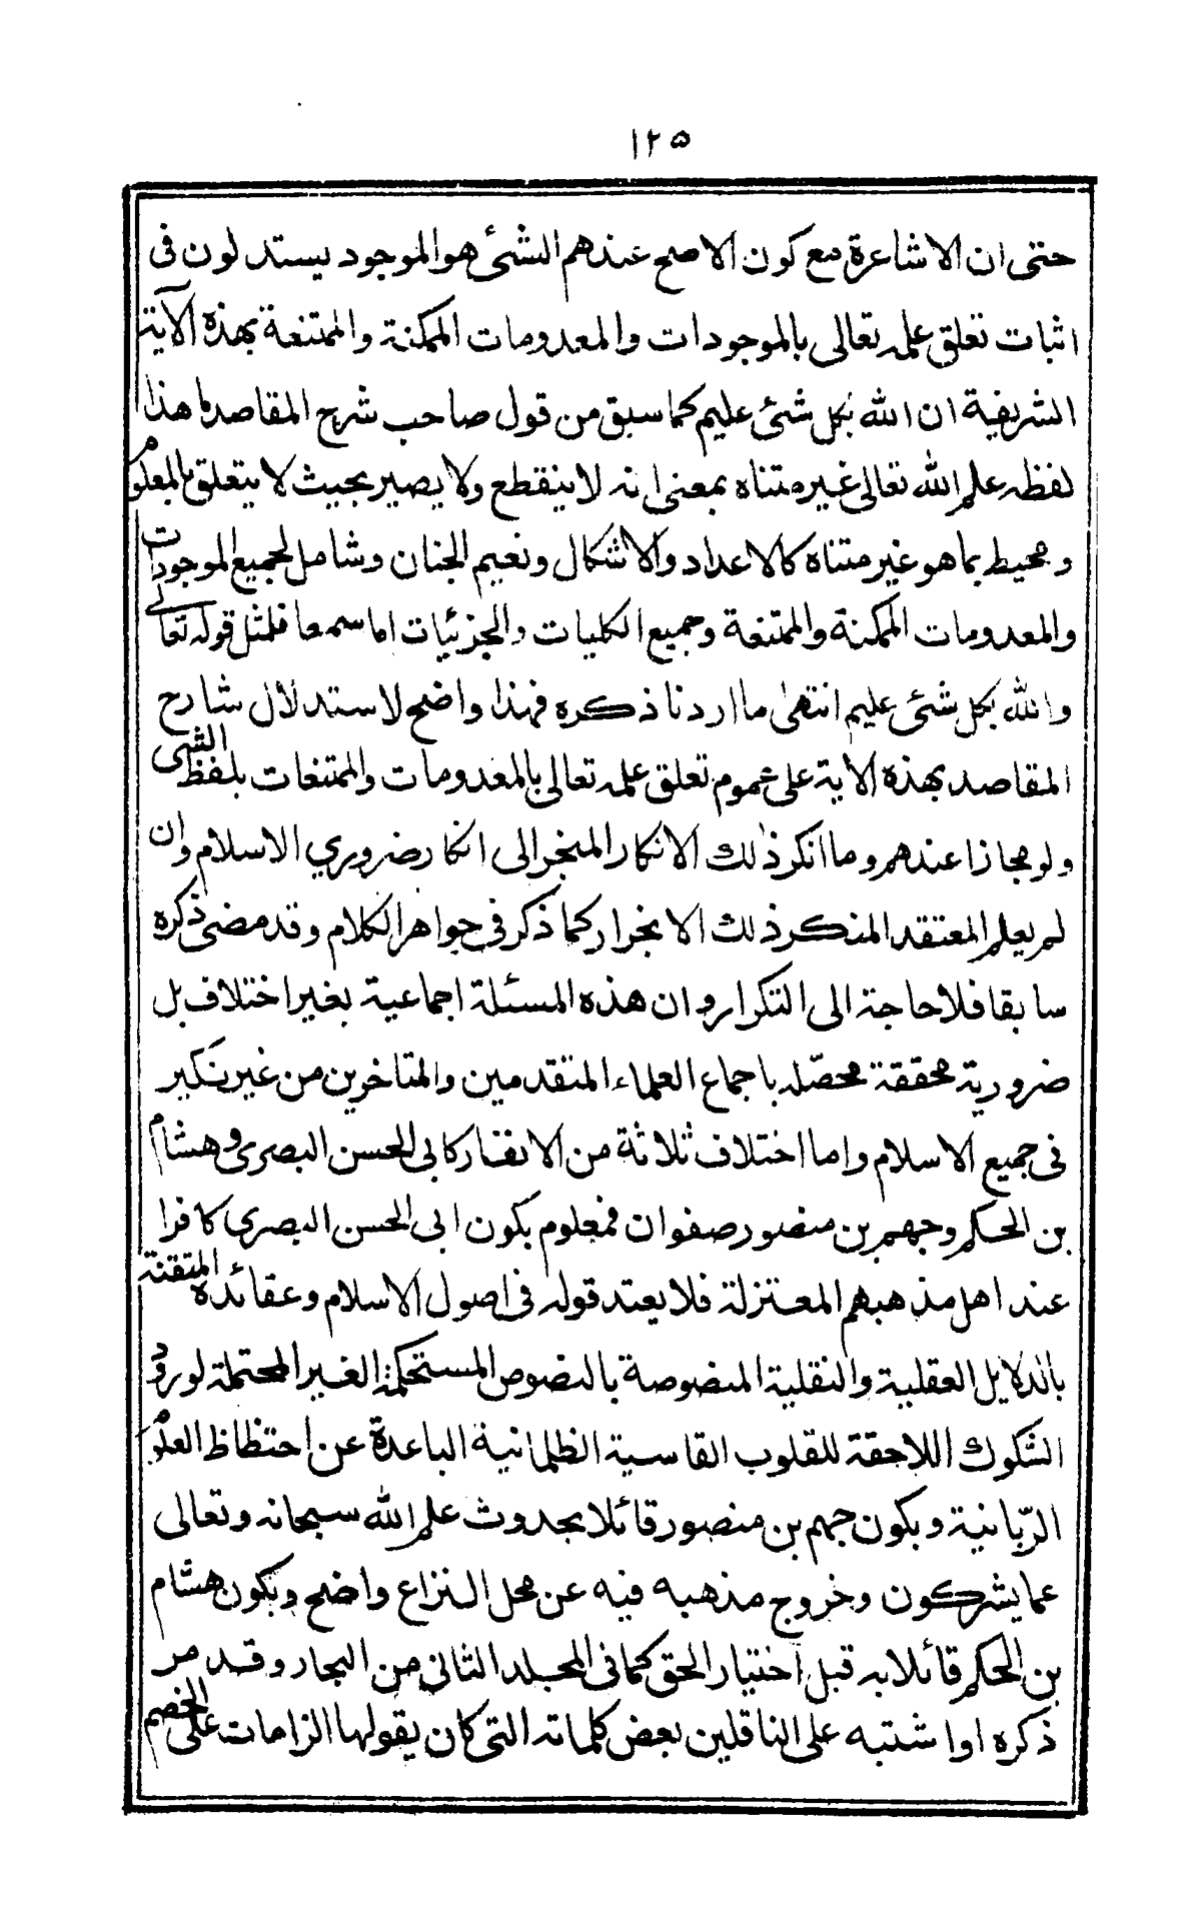 ١٢٥
حتى ان الاشاعرة مع كون الاصح عندهم الشئ هو الموجود يستدلون فى
اثبات تعلق علمه تعالى بالموجودات والمعدومات الممكنة والممتنعة بهذه الآية
الشريفية ان الله بكل شئ عليم كما سبق من قول صاحب شرح المقاصد ما هذا
لفظه علم الله تعالى غير متناه بمعنى انه لا ينقطع ولا يصير بحيث لا يتعلق بالمعلوم
ومحيط بما هو غير متناه كالاعداد والاشكال ونعيم الجنان وشامل لجميع الموجودات
والمعدومات الممكنة والممتنعة وجميع الكليات والجزئيات اما سمعا فلمثل قوله تعالى
والله بكل شئ عليم انتهى ما اردنا ذكره فهذا واضح لاستدلال شارح
المقاصد بهذه الاية على عموم تعلق علمه تعالى بالمعدومات والممتنعات بلفظ الشى
ولو مجازا عندهم وما انكر ذلك الانكار المنجر الى انكار ضروري الاسلام وان
لم يعلم المعتقد المنكر ذلك الانجرار كما ذكر فى جواهر الكلام وقد مضى ذكره
سابقا فلا حاجة الى التكرار وان هذه المسئلة اجماعية بغير اختلاف بل
ضرورية محققة محصّله باجماع العلماء المتقدمين والمتاخرين من غير نكير
فى جميع الاسلام واما اختلاف ثلاثة من الانفار كابى الحسن البصرى وهشام
بن الحكم وجهم بن منصور صفوان فمعلوم بكون ابى الحسن البصرى كافرا
عند اهل مذهبهم المعتزلة فلا يعتد قوله فى اصول الاسلام وعقائده المتقنة
بالدلايل العقلية والنقلية المنصوصة بالنصوص المستحكمة الغير المحتملة لورود
الشكوك اللاحقة للقلوب القاسية الظلمانية الباعدة عن احتظاظ العلوم
الربّانية وبكون جهم بن منصور قائلا بحدوث علم الله سبحانه وتعالى
عما يشركون وخروج مذهبه فيه عن محل النزاع واضح وبكون هشام
بن الحكم قائلا به قبل اختيار الحق كما فى المجلد الثانى من البحار وقد مر
ذكره او اشتبه على الناقلين بعض كلماته التى كان يقولها الزامات على الخصم